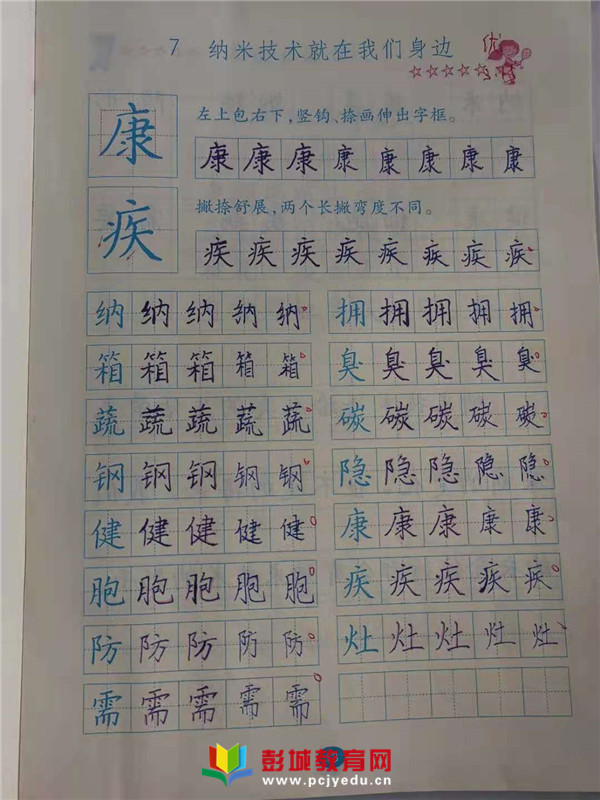 7 纳米技术就在我们身边 优
康 左上包右下，竖钩、捺画伸出字框。
康 康 康 康 康 康 康 康
疾 撇捺舒展，两个长撇弯度不同。
疾 疾 疾 疾 疾 疾 疾 疾
纳 纳 纳 纳 纳 拥 拥 拥 拥 拥
箱 箱 箱 箱 箱 臭 臭 臭 臭 臭
蔬 蔬 蔬 蔬 蔬 碳 碳 碳 碳 碳
钢 钢 钢 钢 钢 隐 隐 隐 隐 隐
健 健 健 健 健 康 康 康 康 康
胞 胞 胞 胞 胞 疾 疾 疾 疾 疾
防 防 防 防 防 灶 灶 灶 灶 灶
需 需 需 需 需
彭城教育网
www.pcjyedu.cn